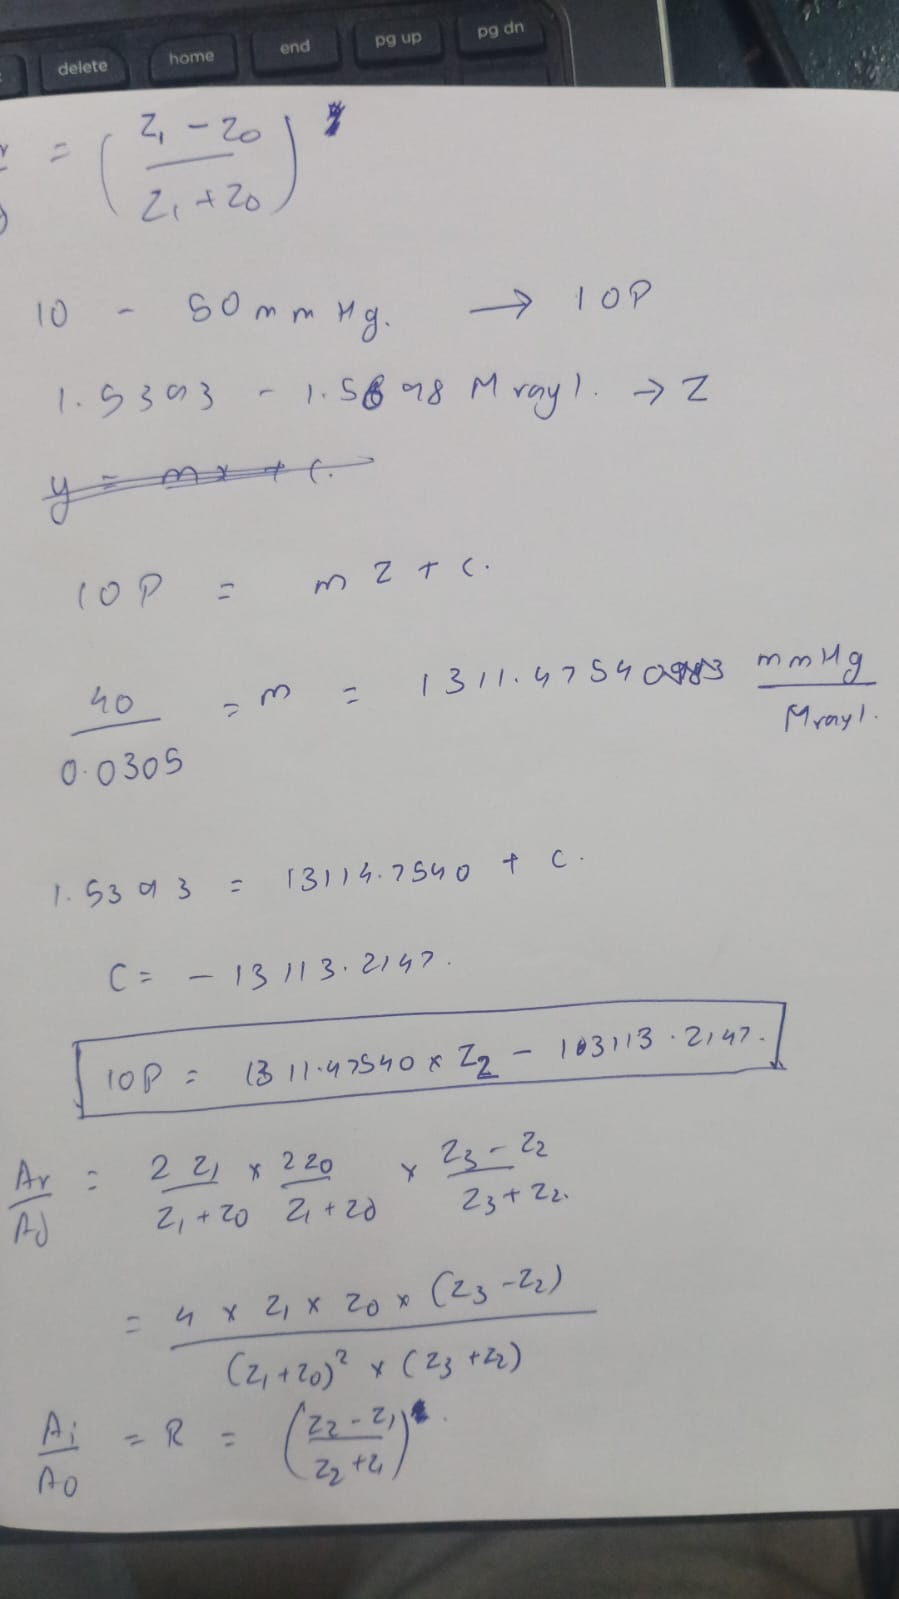 delete home end pg up pg dn
= ( Z₁ - Z0 / Z₁ + Z0 )
10 - 50 mmHg. → IOP
1.5393 - 1.5698 Mrayl. → Z
y = mx + c.
IOP = mZ + c.
40 / 0.0305 = m = 1311.47540983 mmHg / Mrayl.
1.5393 = 13114.7540 + c.
C = - 13113.2147.
IOP = 1311.47540 x Z₂ - 13113.2147.
Ar / A0 = 2 Z₁ / Z₁ + Z0 x 2 Z0 / Z₁ + Z0 x Z3 - Z2 / Z3 + Z2.
= 4 x Z₁ x Z0 x (Z3 - Z2) / (Z₁ + Z0)² x (Z3 + Z2)
Ai / A0 = R = ( Z2 - Z₁ / Z2 + Z₁ ).